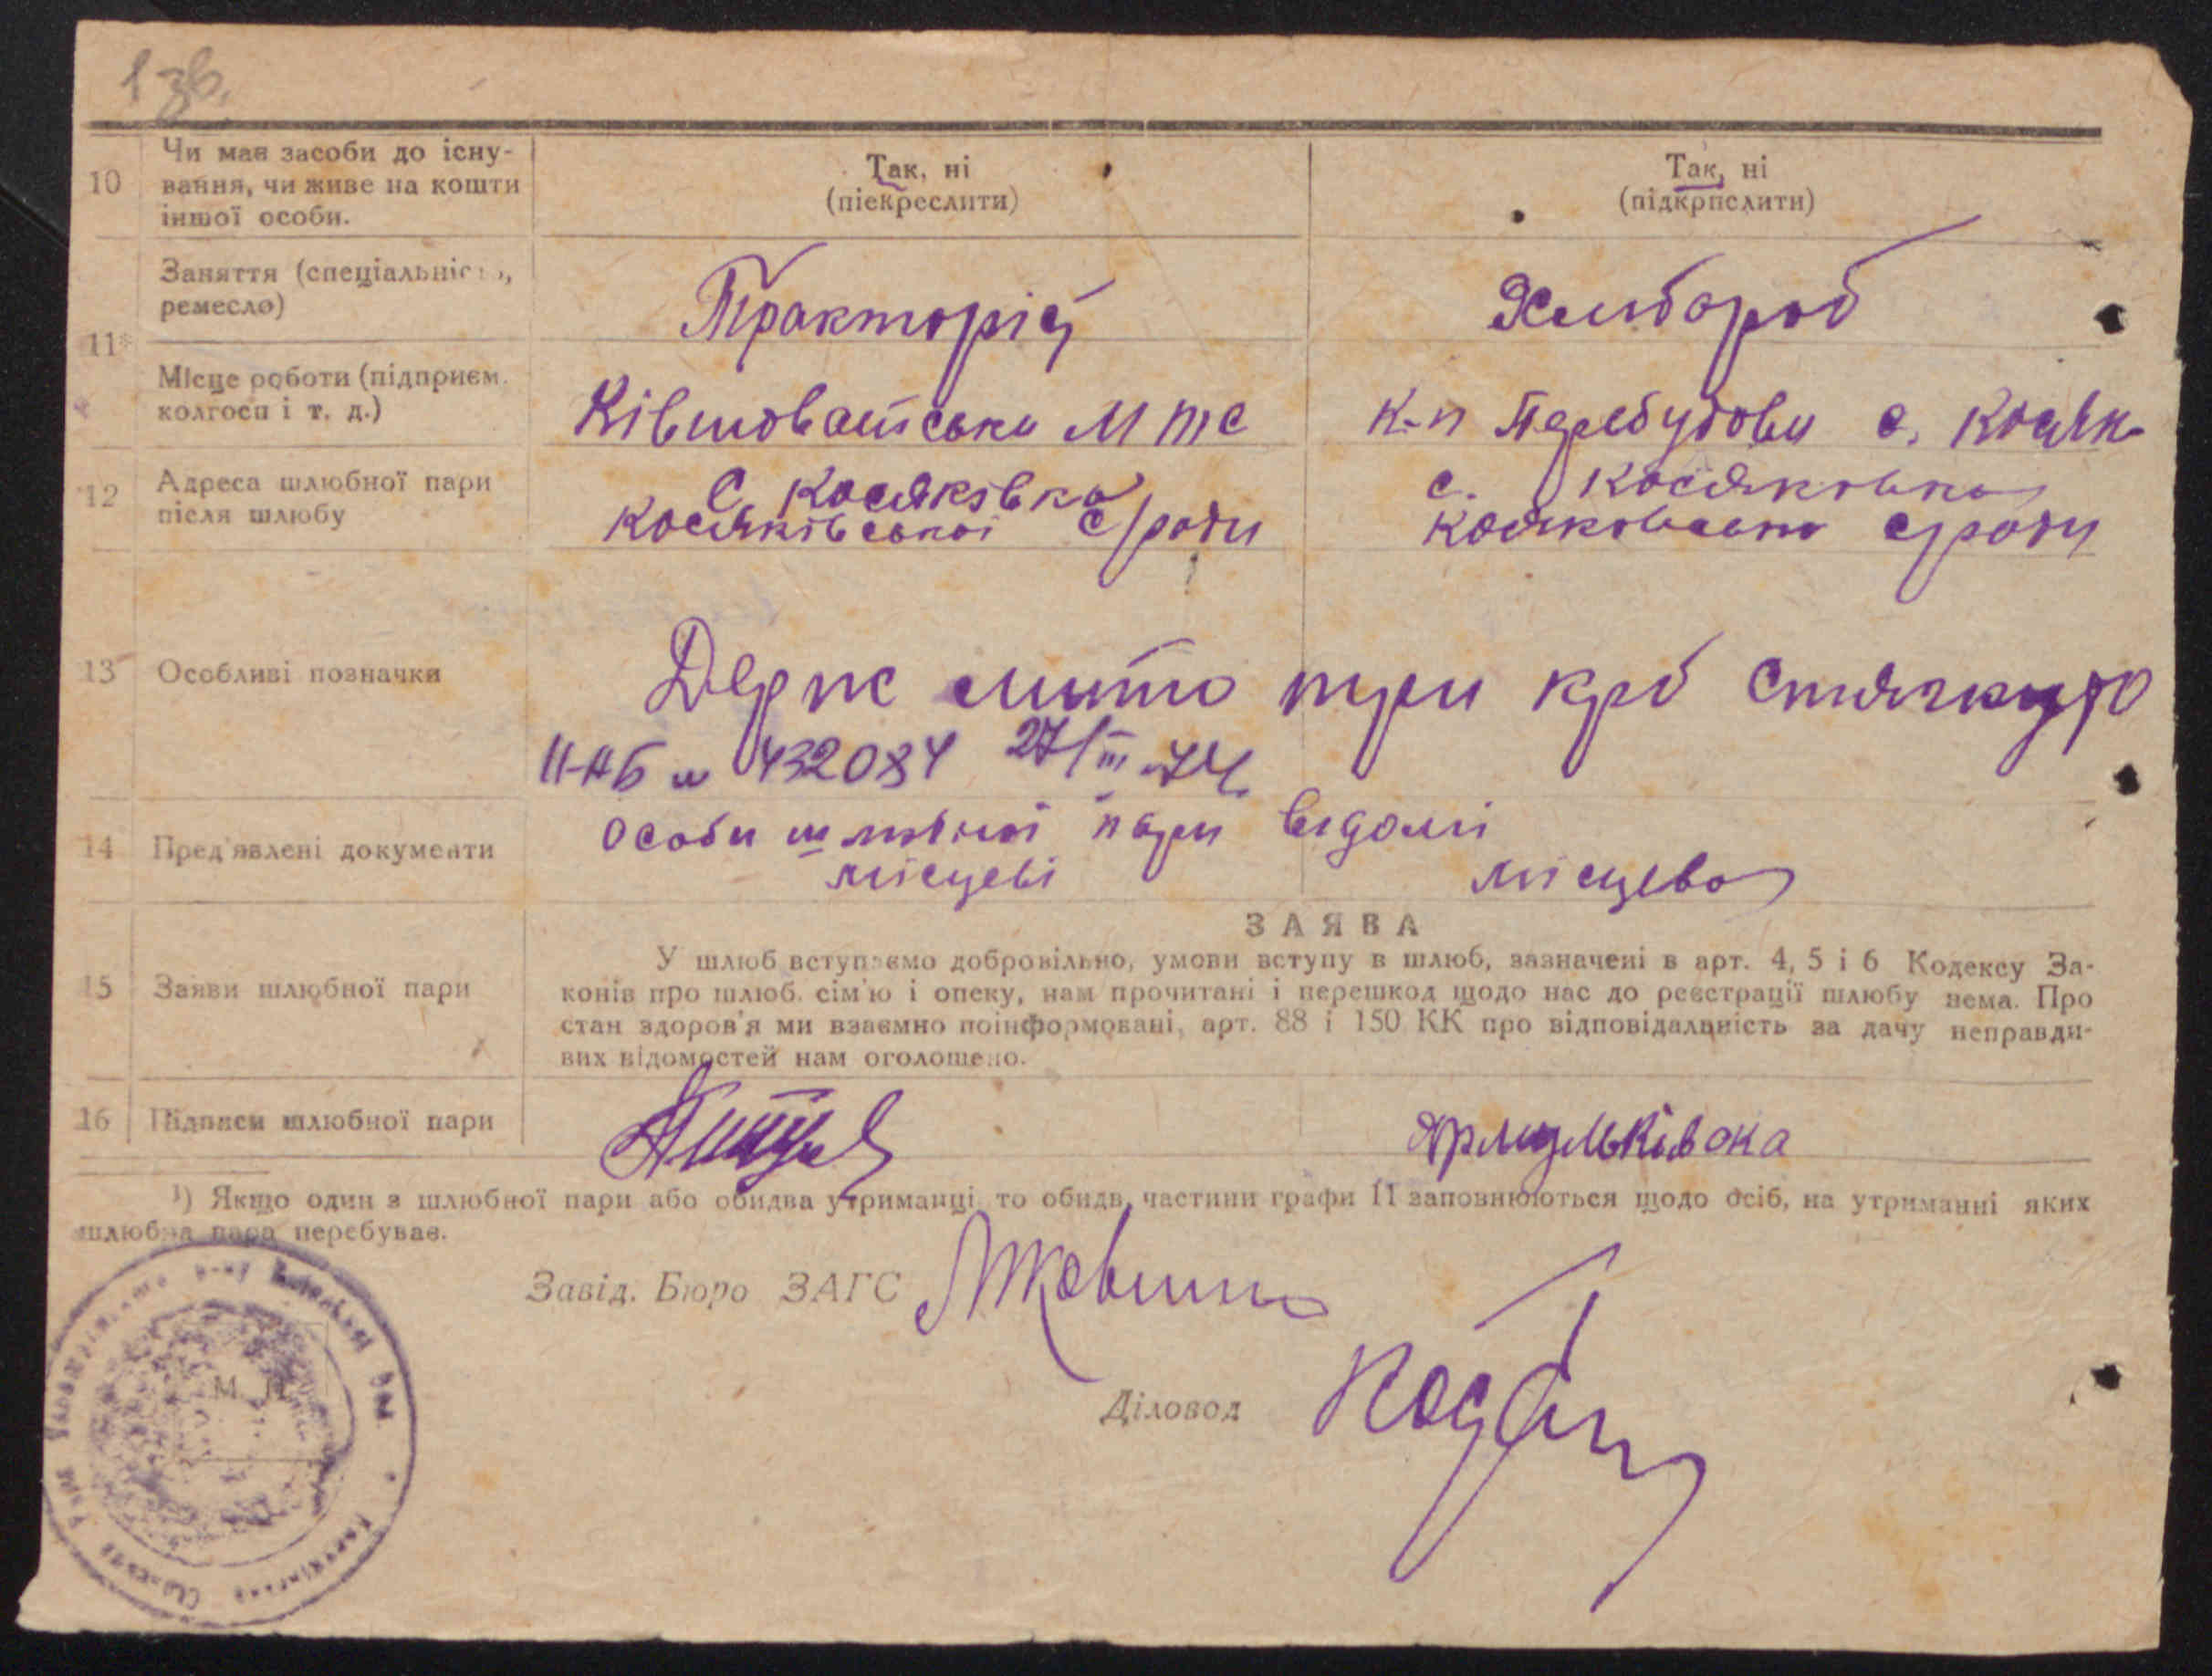 1 зв.
10
Чи має засоби до існу-
вання, чи живе на кошти
іншої особи.
Так, ні
(піекреслити)
Так, ні
(підкрпслити)
11*
Заняття (спеціальність,
ремесло)
Тракторіст
Хлибороб
Місце роботи (підприєм.
колгосп і т. д.)
Ківшоватська МТС
к-п Перебудови с. Косяк
12
Адреса шлюбної пари
після шлюбу
с Косяківка
Косяківської с/ради
с. Косяковка
с/ради
13
Особливі позначки
Держ мито три крб стягнуто
432084 27/III
14
Пред'явлені документи
Особи шлюбної пари відомі
місцеві
місцева
15
Заяви шлюбної пари
ЗАЯВА
У шлюб вступаємо добровільно, умови вступу в шлюб, зазначені в арт. 4, 5 і 6 Кодексу За-
конів про шлюб. сім'ю і опеку, нам прочитані і перешкод щодо нас до реєстрації шлюбу нема. Про
стан здоров'я ми взаємно поінформовані, арт. 88 і 150 КК про відповідальність за дачу неправди-
вих відомостей нам оголошено.
16
Підписи шлюбної пари
¹) Якщо один з шлюбної пари або обидва утриманці, то обидв, частини графи 11 заповнюються щодо осіб, на утриманні яких
шлюбна пара перебуває.
Завід. Бюро ЗАГС
М. П.
Діловод